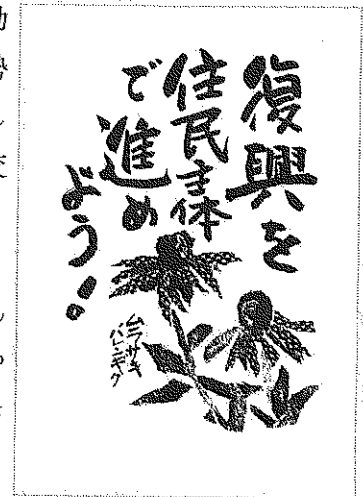 復興を
住民主体
で進め
よう!
ムラサキ
バレンギク